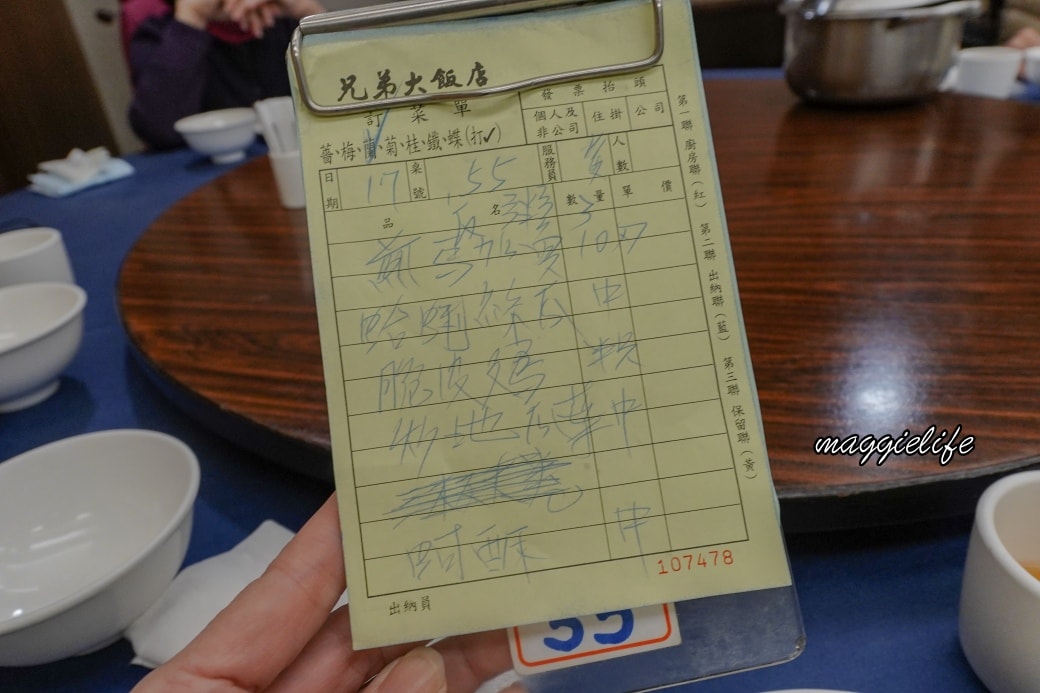 兄弟大飯店
訂菜單
薔·梅·蘭·菊·桂·鐵·蝶(打✓)
發票抬頭
個人及非公司 住掛 公司
日期 17 桌號 55 服務員 人數
品名 數量 單價
10×7
蛤蜊絲瓜 中
脆皮鷄 半只
炒地瓜葉 中
蚵酥 中
出納員
107478
第一聯 廚房聯(紅) 第二聯 出納聯(藍) 第三聯 保留聯(黃)
55
maggielife